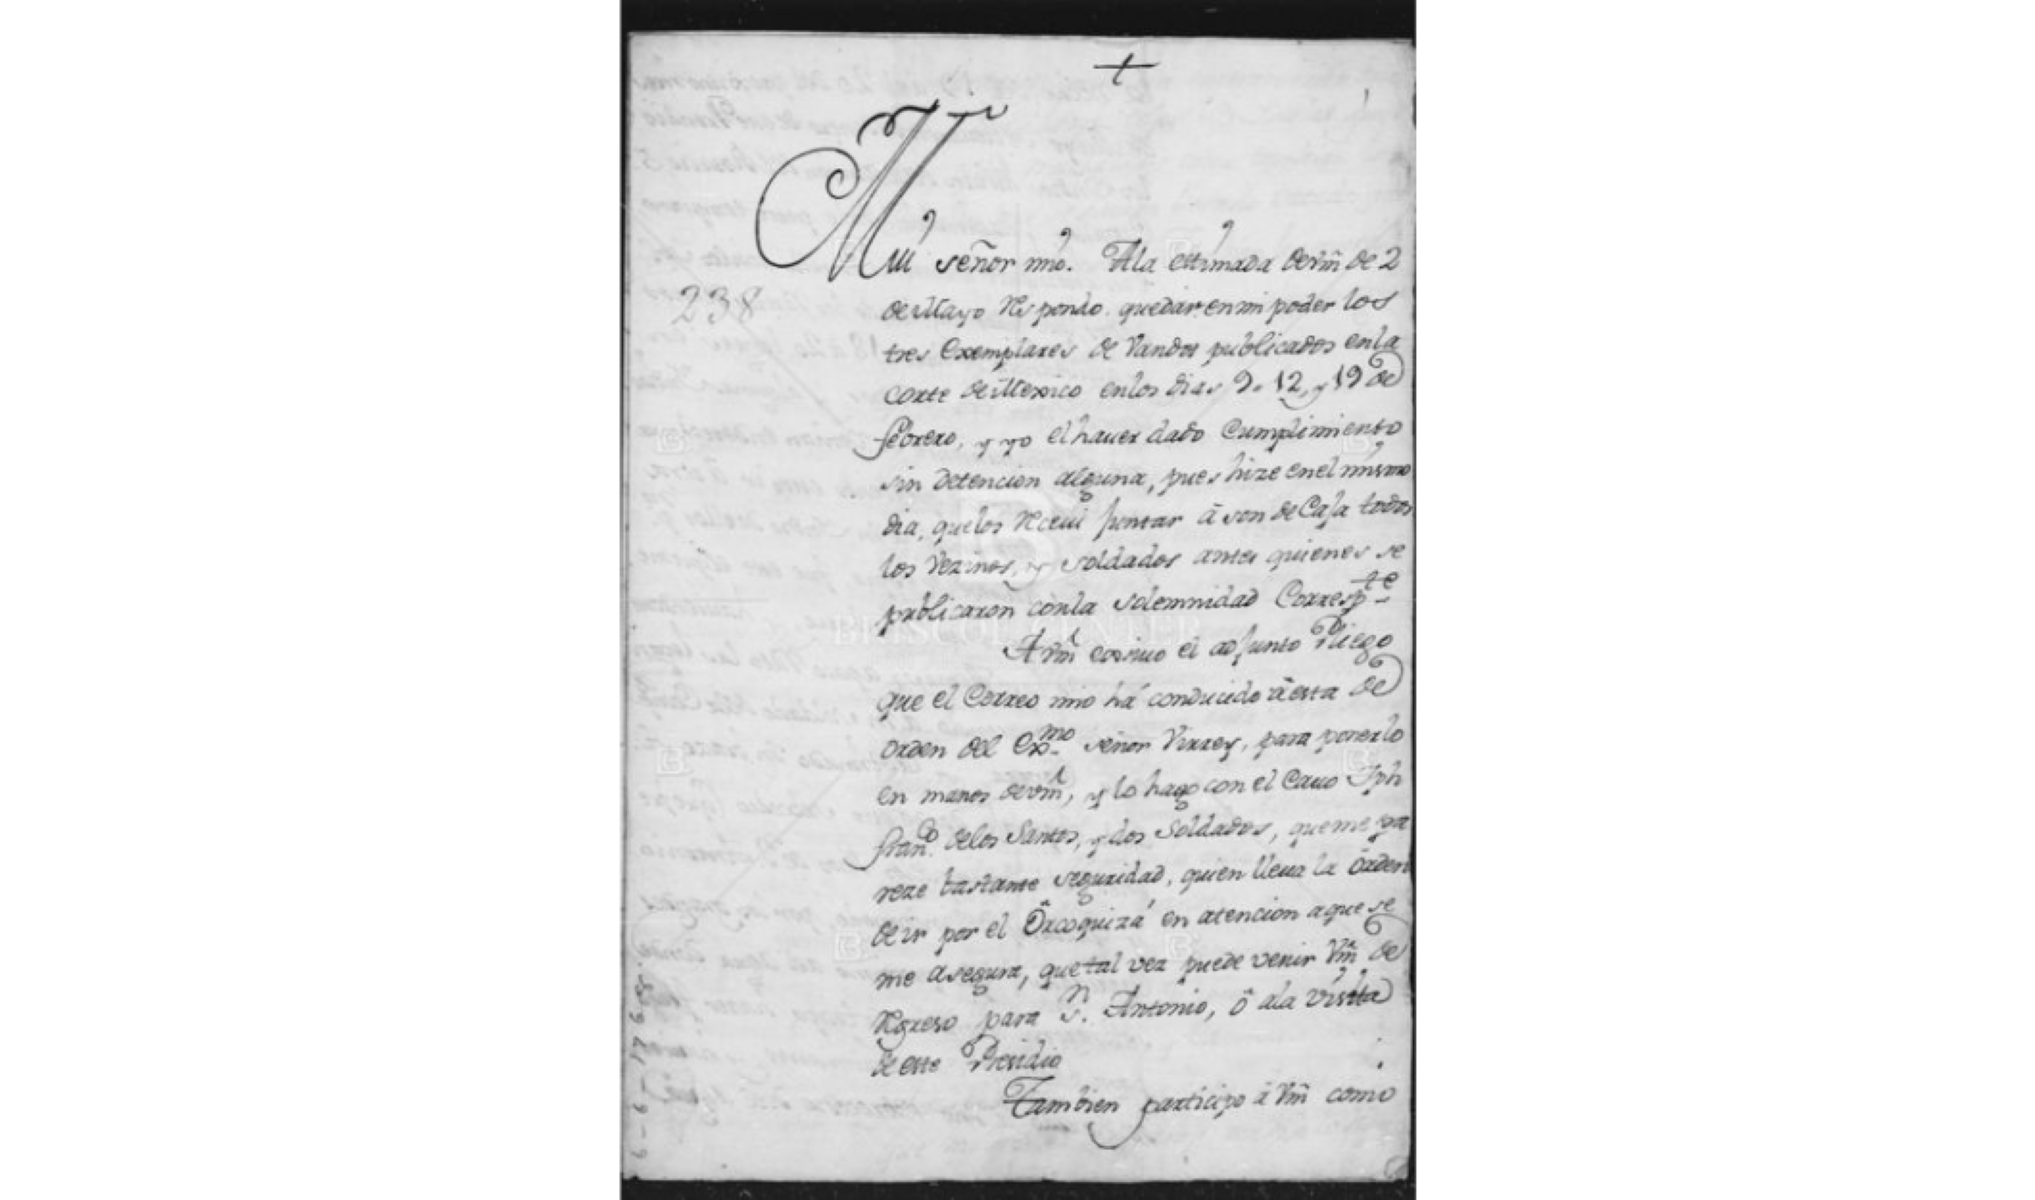 +
Mui señor mio. Ala estimada de vm̃ de 2
238
de Mayo Respondo. quedar en mi poder los
tres exemplares de Vandos publicados en la
corte de Mexico en los dias 9. 12, y 19 de
febrero, y yo el hauer dado Cumplimiento
sin detencion alguna, pues hize en el mismo
dia, que los Receui juntar â son de Caja todos
los Vezinos, y soldados antes quienes se
publicaron con la solemnidad Correspte
A vm̃ embio el adjunto Pliego
que el Correo mio há conducido â esta de
orden del Exmo señor Virrey, para ponerlo
en manos de vm̃, y lo hago con el Cauo Jph
Franco. de los Santos, y dos Soldados, que me pa
reze bastante seguridad, quien lleua la orden
de ir por el Orcoquizá en atencion a que se
me asegura, que tal vez puede venir Vm̃ de
Regreso para Sn. Antonio, ô ala visita
de este Presidio
Tambien participo â Vm̃ como
BRISCOE CENTER